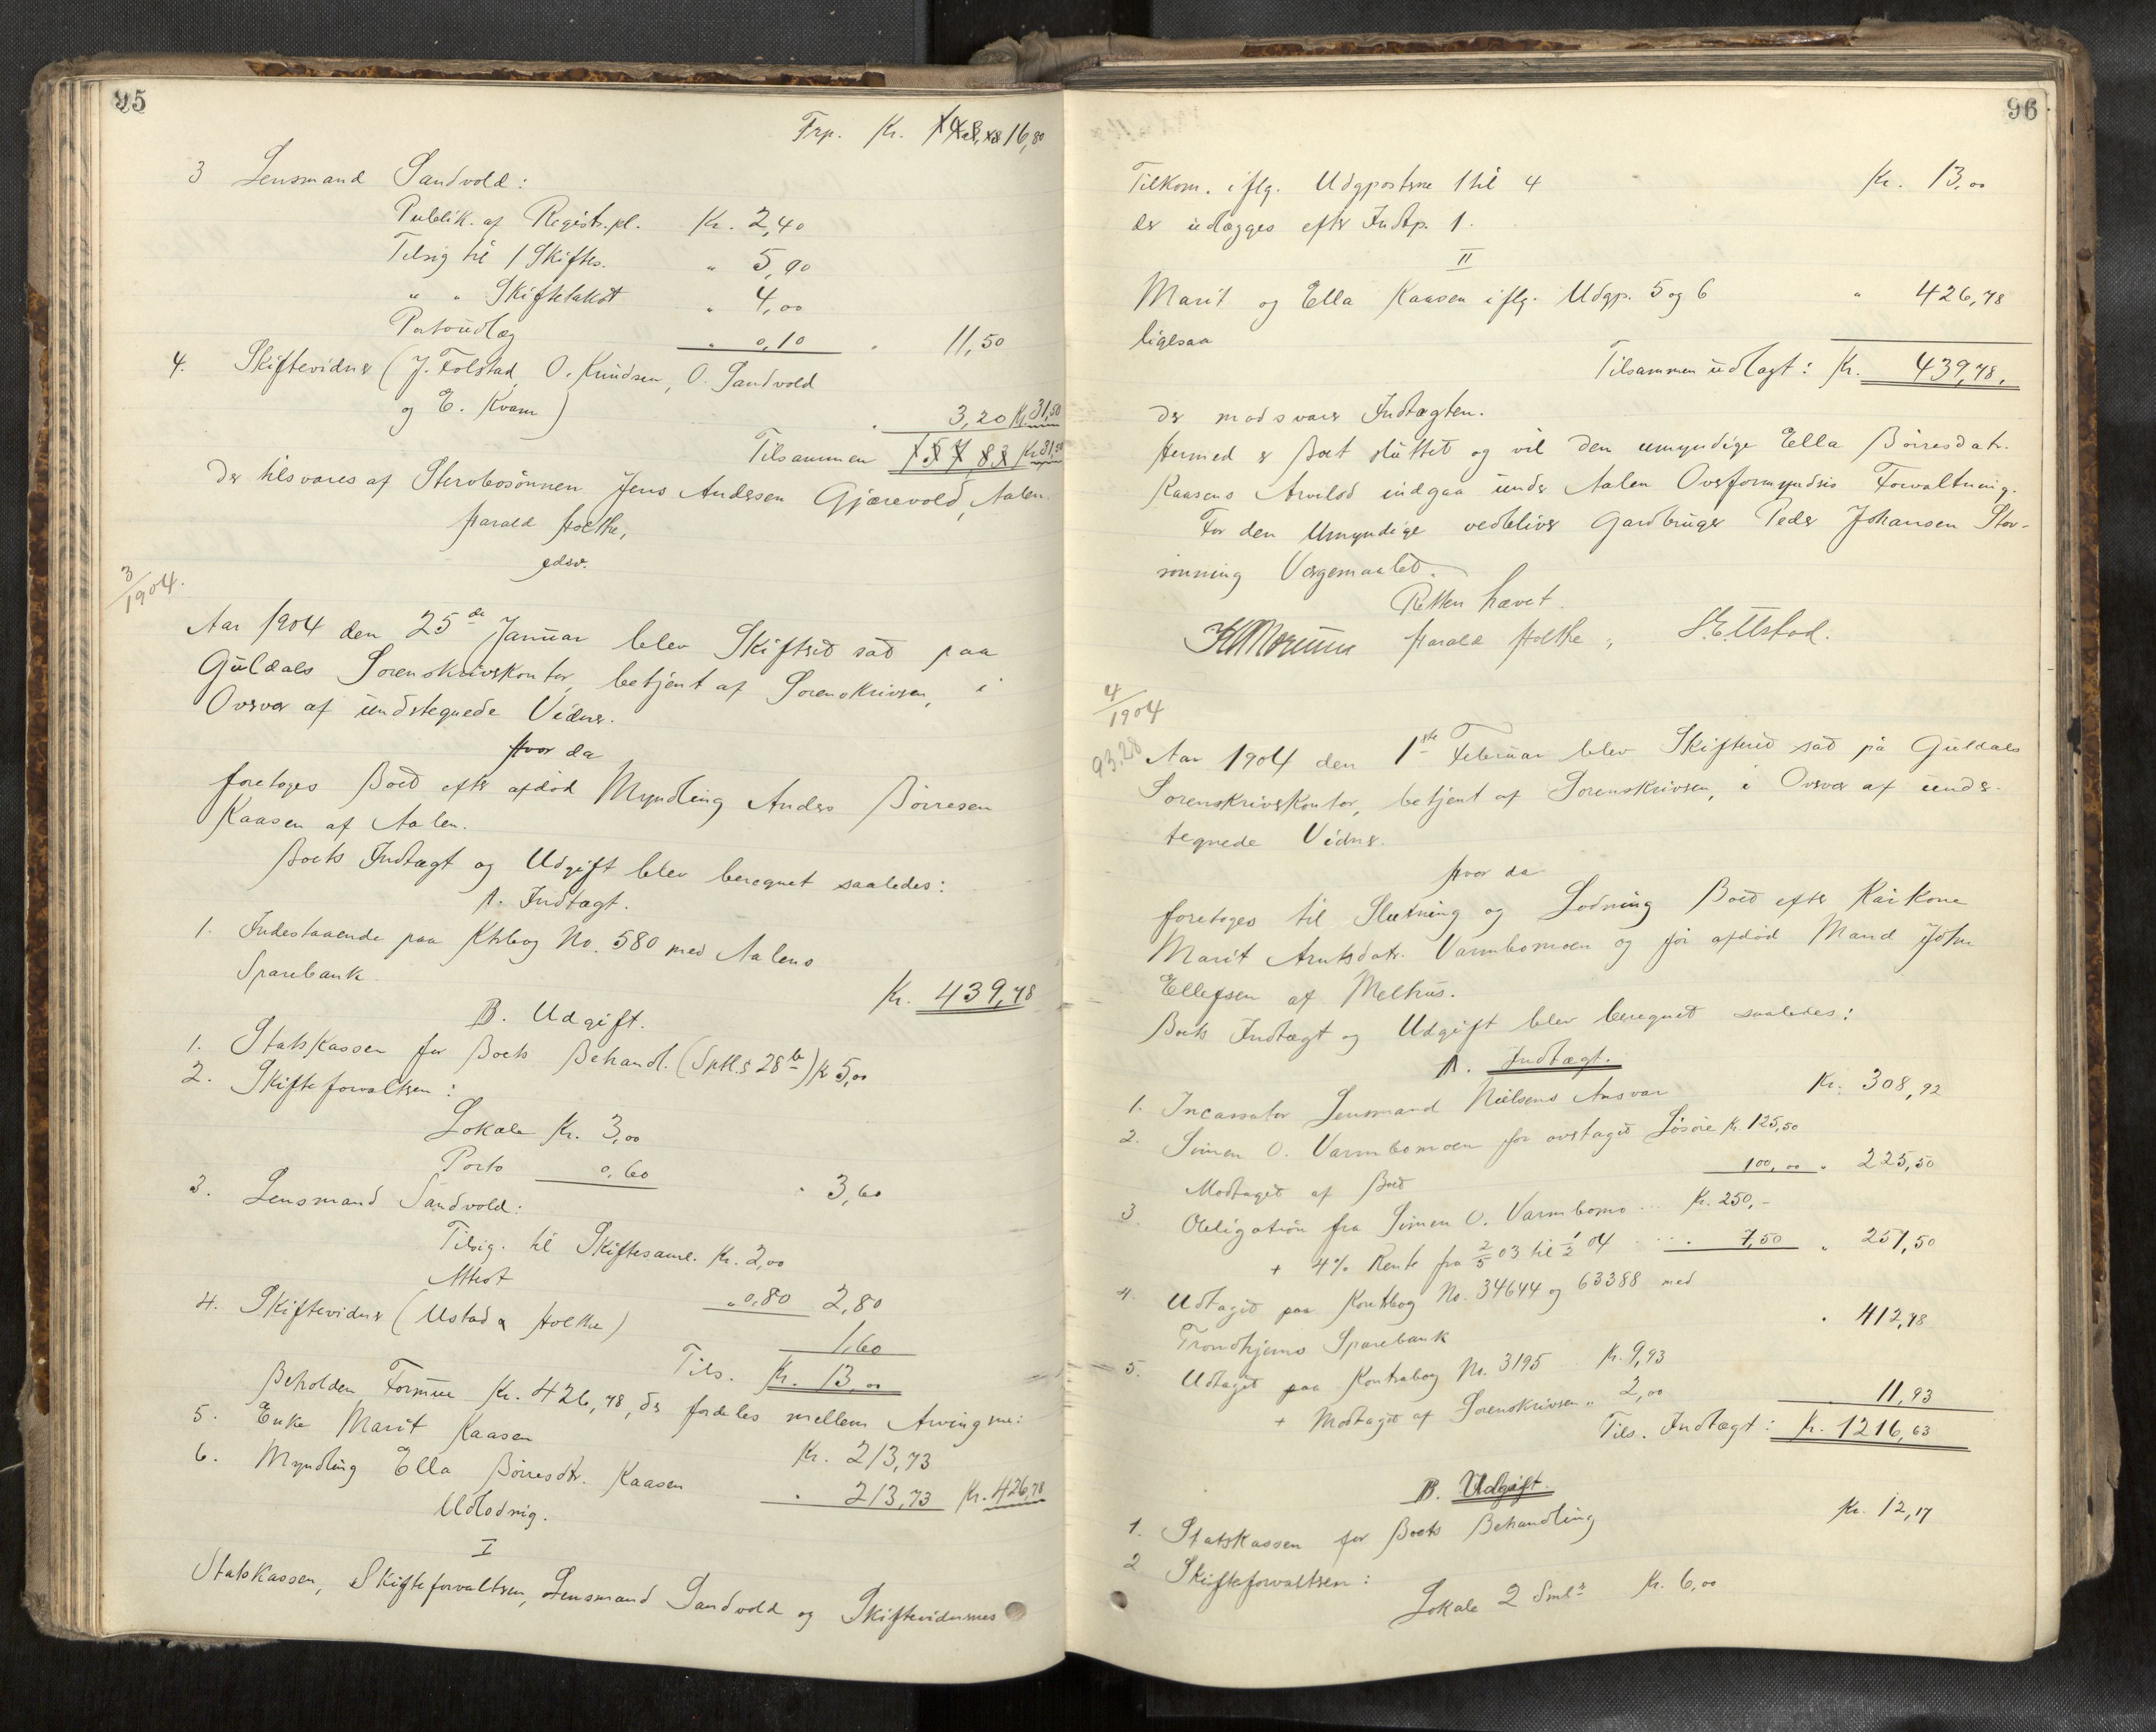 95
Trp. Kr. 16,80
3 Lensmand Sandvold:
Publik. af Registr.pl. Kr. 2,40
Tilsig til 1 Skiftes. " 5,00
" " Skiftetakst " 4,00
Portoudlæg " 0,10 " 11,50
4. Skiftevidner (J. Folstad, O. Knudsen, O. Sandvold
og E. Kvam) " 3,20 Kr. 31,50
Tilsammen Kr. 31,50
der tilsvares af Stervbosönnen Jens Andersen Gjærevold, Aalen.
Harald Holthe,
edsv.
3/1904.
Aar 1904 den 25de Januar blev Skifteret sat paa
Guldals Sorenskriverkontor, betjent af Sorenskriveren, i
Overvær af undertegnede Vidner.
Hvor da
foretoges Boet efter afdöd Myndling Anders Börresen
Kaasen af Aalen.
Boets Indtægt og Udgift blev beregnet saaledes:
A. Indtægt.
1. Indestaaende paa Ktrbog No. 580 med Aalens
Sparebank Kr. 439,78
B. Udgift.
1. Statskassen for Boets Behandl. (Sptl. § 28 b) Kr 5,00
2. Skifteforvalteren:
Lokale Kr. 3,00
Porto 0,60 " 3,60
3. Lensmand Sandvold:
Tilsig. til Skiftesaml. Kr. 2,00
Attest " 0,80 2,80
4. Skiftevidner (Ustad & Holthe) 1,60
Tils. Kr. 13,00
Beholden Formue Kr. 426,78, der fordeles mellem Arvingerne:
5. Enke Marit Kaasen Kr. 213,73
6. Myndling Ella Börresdtr. Kaasen " 213,73 Kr. 426,78
Udlodnig.
I
Statskassen, Skifteforvalteren, Lensmand Sandvold og Skiftevidnernes
96
Tilkom. iflg. Udgposterne 1 til 4 Kr. 13,00
der udlægges efter Indtp. 1.
II
Marit og Ella Kaasen iflg. Udgp. 5 og 6 " 426,78
ligesaa
Tilsammen udlagt: Kr. 439,78.
der modsvarer Indtægten.
Hermed er Boet sluttet og vil den umyndige Ella Börresdatr.
Kaasens Arvelod indgaa under Aalen Overformynderis Forvaltning.
For den Umyndige vedbliver Gardbruger Peder Johansen Stor-
rönning Værgemaalet.
Retten hævet.
Harald Holthe, S. E. Ustad.
4/1904
93,28
Aar 1904 den 1ste Februar blev Skifteret sat på Guldals
Sorenskriverkontor, betjent af Sorenskriveren, i Overvær af under-
tegnede Vidner.
Hvor da
foretoges til Slutning og Lodning Boet efter Kårkone
Marit Arntsdatr. Varmbomoen og för afdöd Mand John
Ellefsen af Melhus.
Boets Indtægt og Udgift blev beregnet saaledes:
A. Indtægt.
1. Incassator Lensmand Nielsens Ansvar Kr. 308,92
2. Simen O. Varmbomoen for overtaget Lösöre Kr. 125,50
Modtaget af Boet 100,00 " 225,50
3. Obligation fra Simen O. Varmbomo ... Kr. 250,-
+ 4% Rente fra 2/5 03 til 1/2 04 .... " 7,50 " 257,50
4. Udtaget paa Kontrbog No. 34644 og 63388 med
Trondhjems Sparebank " 412,78
5. Udtaget paa Kontrabog No. 3195 Kr. 9,93
+ Modtaget af Sorenskriveren " 2,00 11,93
Tils. Indtægt: Kr. 1216,63
B. Udgift.
1. Statskassen for Boets Behandling Kr. 12,17
2 Skifteforvalteren:
Lokale 2 Sml.r Kr. 6,00